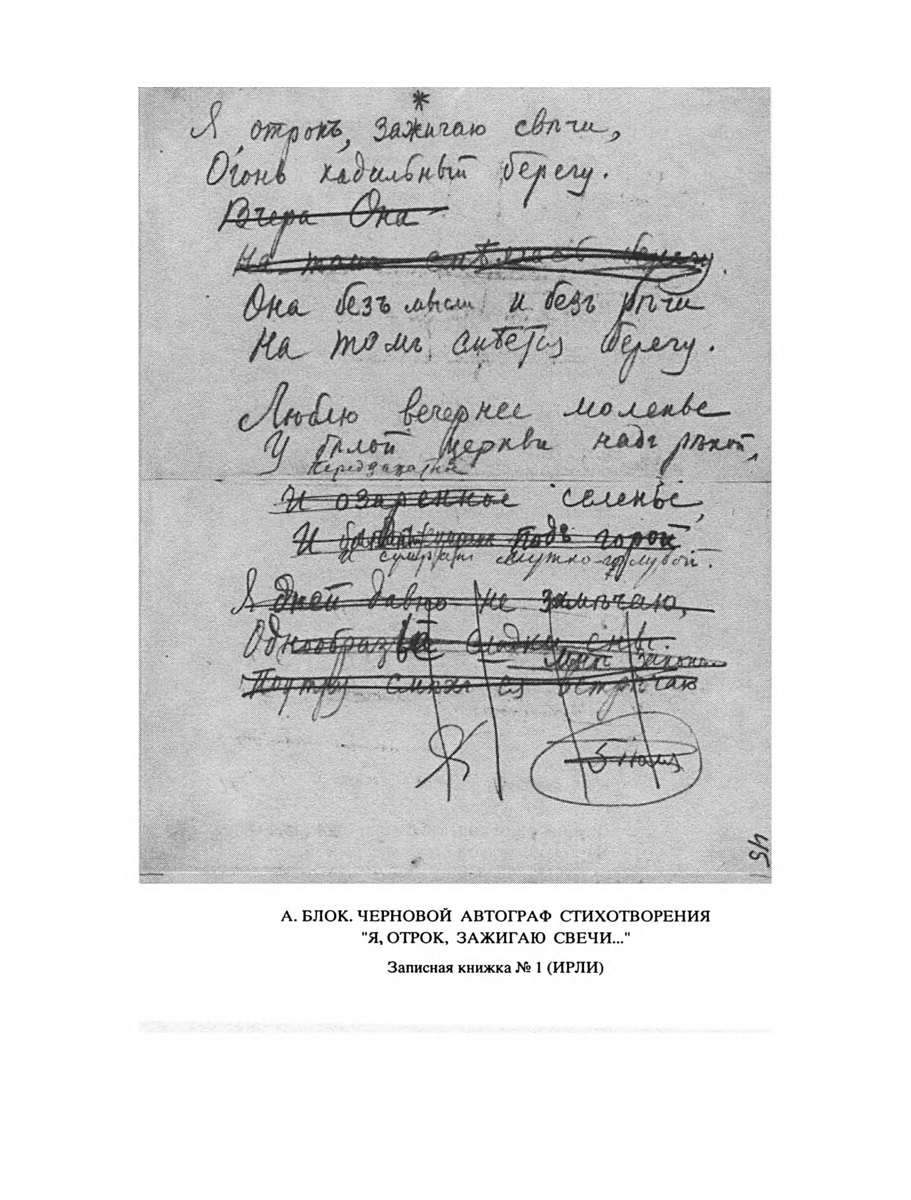 *
Я, отрокъ, зажигаю свѣчи,
Огонь кадильный берегу.
Вчера Она
На томъ смѣялась берегу.
Она безъ мысли и безъ рѣчи
На томъ смѣется берегу.
Люблю вечернее моленье
У бѣлой церкви надъ рѣкой,
Передзакатное
И озаренное селенье,
И подъ горой
И сумракъ мутно-голубой.
Я дней давно не замѣчаю,
Однообразны сладки сны.
Поутру ея встрѣчаю
5 Июля
45
А. БЛОК. ЧЕРНОВОЙ АВТОГРАФ СТИХОТВОРЕНИЯ
"Я, ОТРОК, ЗАЖИГАЮ СВЕЧИ..."
Записная книжка № 1 (ИРЛИ)